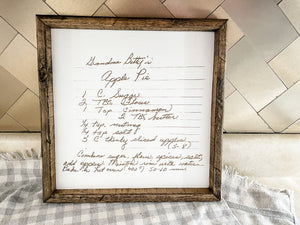 Grandma Betty's
Apple Pie
1 C. Sugar
2 Tbs Flour
1 tsp Cinnamon
2 Tbs butter
⅛ tsp nutmeg
¼ tsp salt
5 C thinly sliced apples
(5-8)
Combine sugar, flour spices, salt,
add apples. Moisten rim with water
Bake in hot oven 400°) 50-60 min